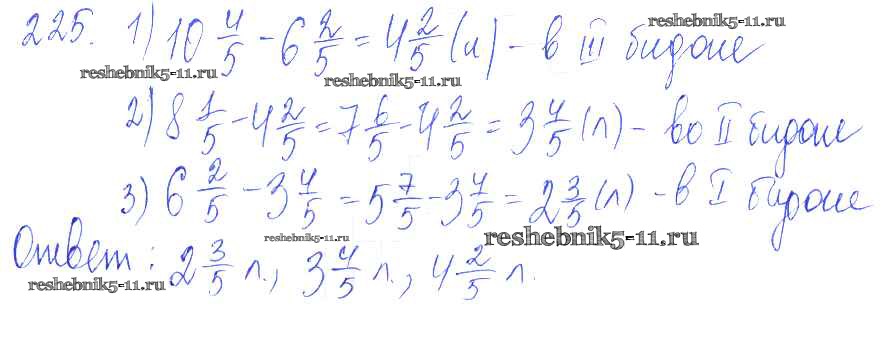 225. 1) 10 4/5 - 6 2/5 = 4 2/5 (л) - в III бидоне
reshebnik5-11.ru
reshebnik5-11.ru
reshebnik5-11.ru
2) 8 1/5 - 4 2/5 = 7 6/5 - 4 2/5 = 3 4/5 (л) - во II бидоне
3) 6 2/5 - 3 4/5 = 5 7/5 - 3 4/5 = 2 3/5 (л) - в I бидоне
reshebnik5-11.ru
reshebnik5-11.ru
Ответ: 2 3/5 л., 3 4/5 л., 4 2/5 л.
reshebnik5-11.ru
reshebnik5-11.ru